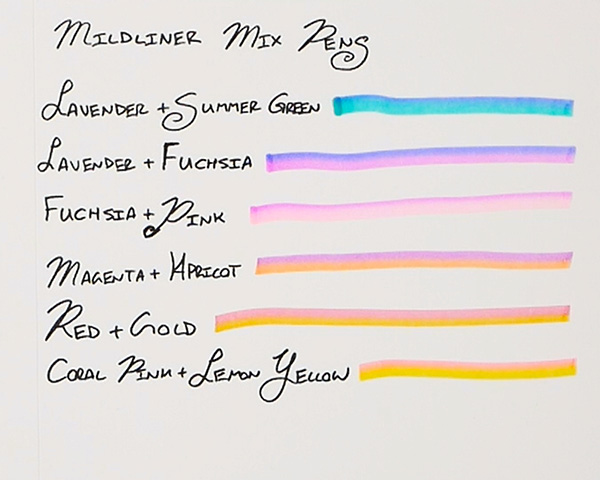 Mildliner Mix Pens
Lavender + Summer Green
Lavender + Fuchsia
Fuchsia + Pink
Magenta + Apricot
Red + Gold
Coral Pink + Lemon Yellow